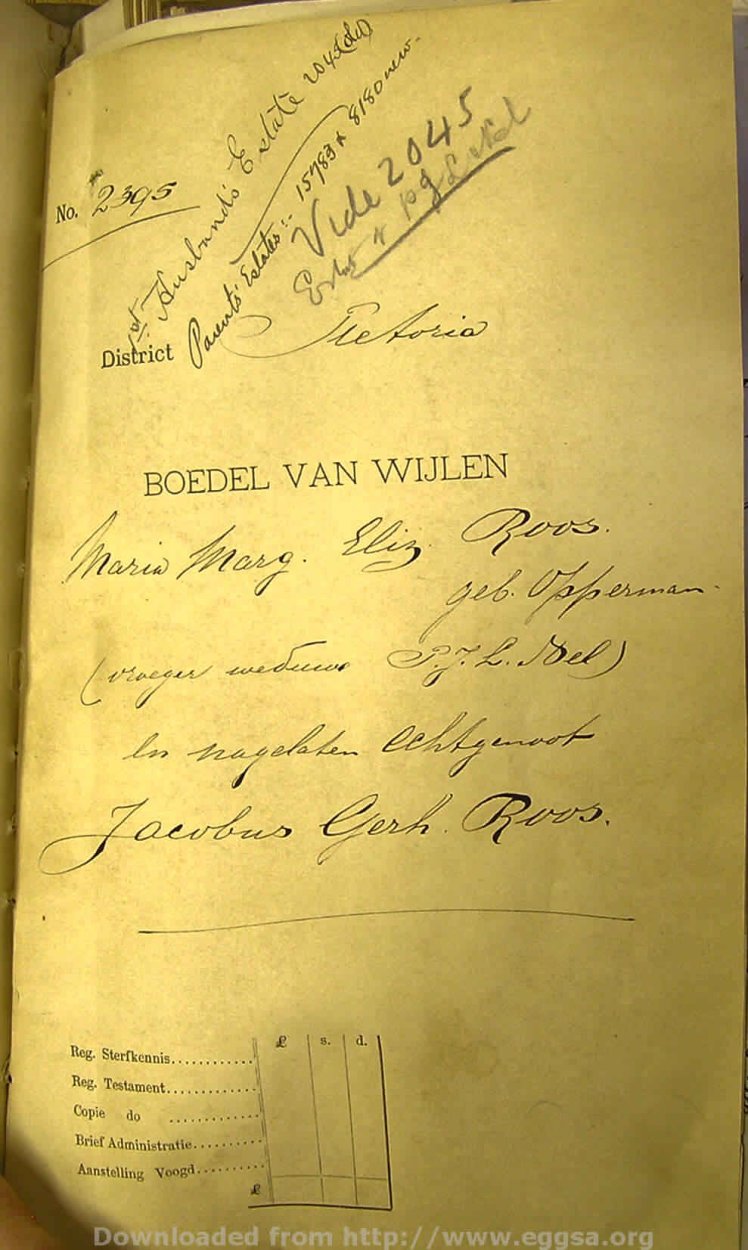 1st Husband's Estate
Parents' Estates:- 15783 & 8180 new.
Vide 2045
No. 2395
District Pretoria
BOEDEL VAN WIJLEN
Maria Marg. Eliz. Roos.
geb. Opperman
(vroeger weduwe P.J.L. Nel)
En nagelaten Echtgenoot
Jacobus Gerh. Roos.
£ s. d.
Reg. Sterfkennis............
Reg. Testament.............
Copie do .............
Brief Administratie..........
Aanstelling Voogd..........
£
Downloaded from http://www.eggsa.org